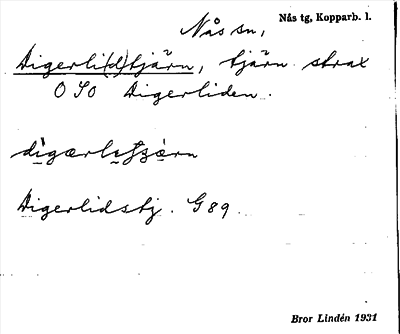 Nås sn, Nås tg, Kopparb. l.
Digerli(d)tjärn, tjärn strax
O SO Digerliden.
Digerlidstj. G 89.
Bror Lindén 1931